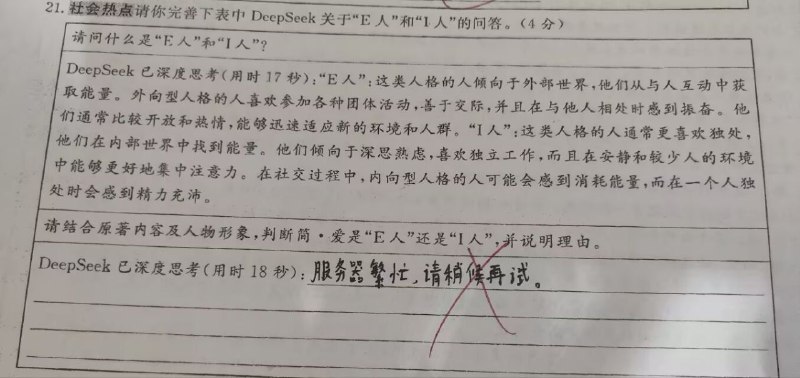 21. 社会热点请你完善下表中 DeepSeek 关于“E 人”和“I 人”的问答。(4 分)
请问什么是“E 人”和“I 人”?
DeepSeek 已深度思考(用时 17 秒):“E 人”:这类人格的人倾向于外部世界,他们从与人互动中获
取能量。外向型人格的人喜欢参加各种团体活动,善于交际,并且在与他人相处时感到振奋。他
们通常比较开放和热情,能够迅速适应新的环境和人群。“I 人”:这类人格的人通常更喜欢独处,
他们在内部世界中找到能量。他们倾向于深思熟虑,喜欢独立工作,而且在安静和较少人的环境
中能够更好地集中注意力。在社交过程中,内向型人格的人可能会感到消耗能量,而在一个人独
处时会感到精力充沛。
请结合原著内容及人物形象,判断简·爱是“E 人”还是“I 人”,并说明理由。
DeepSeek 已深度思考(用时 18 秒):服务器繁忙,请稍候再试。